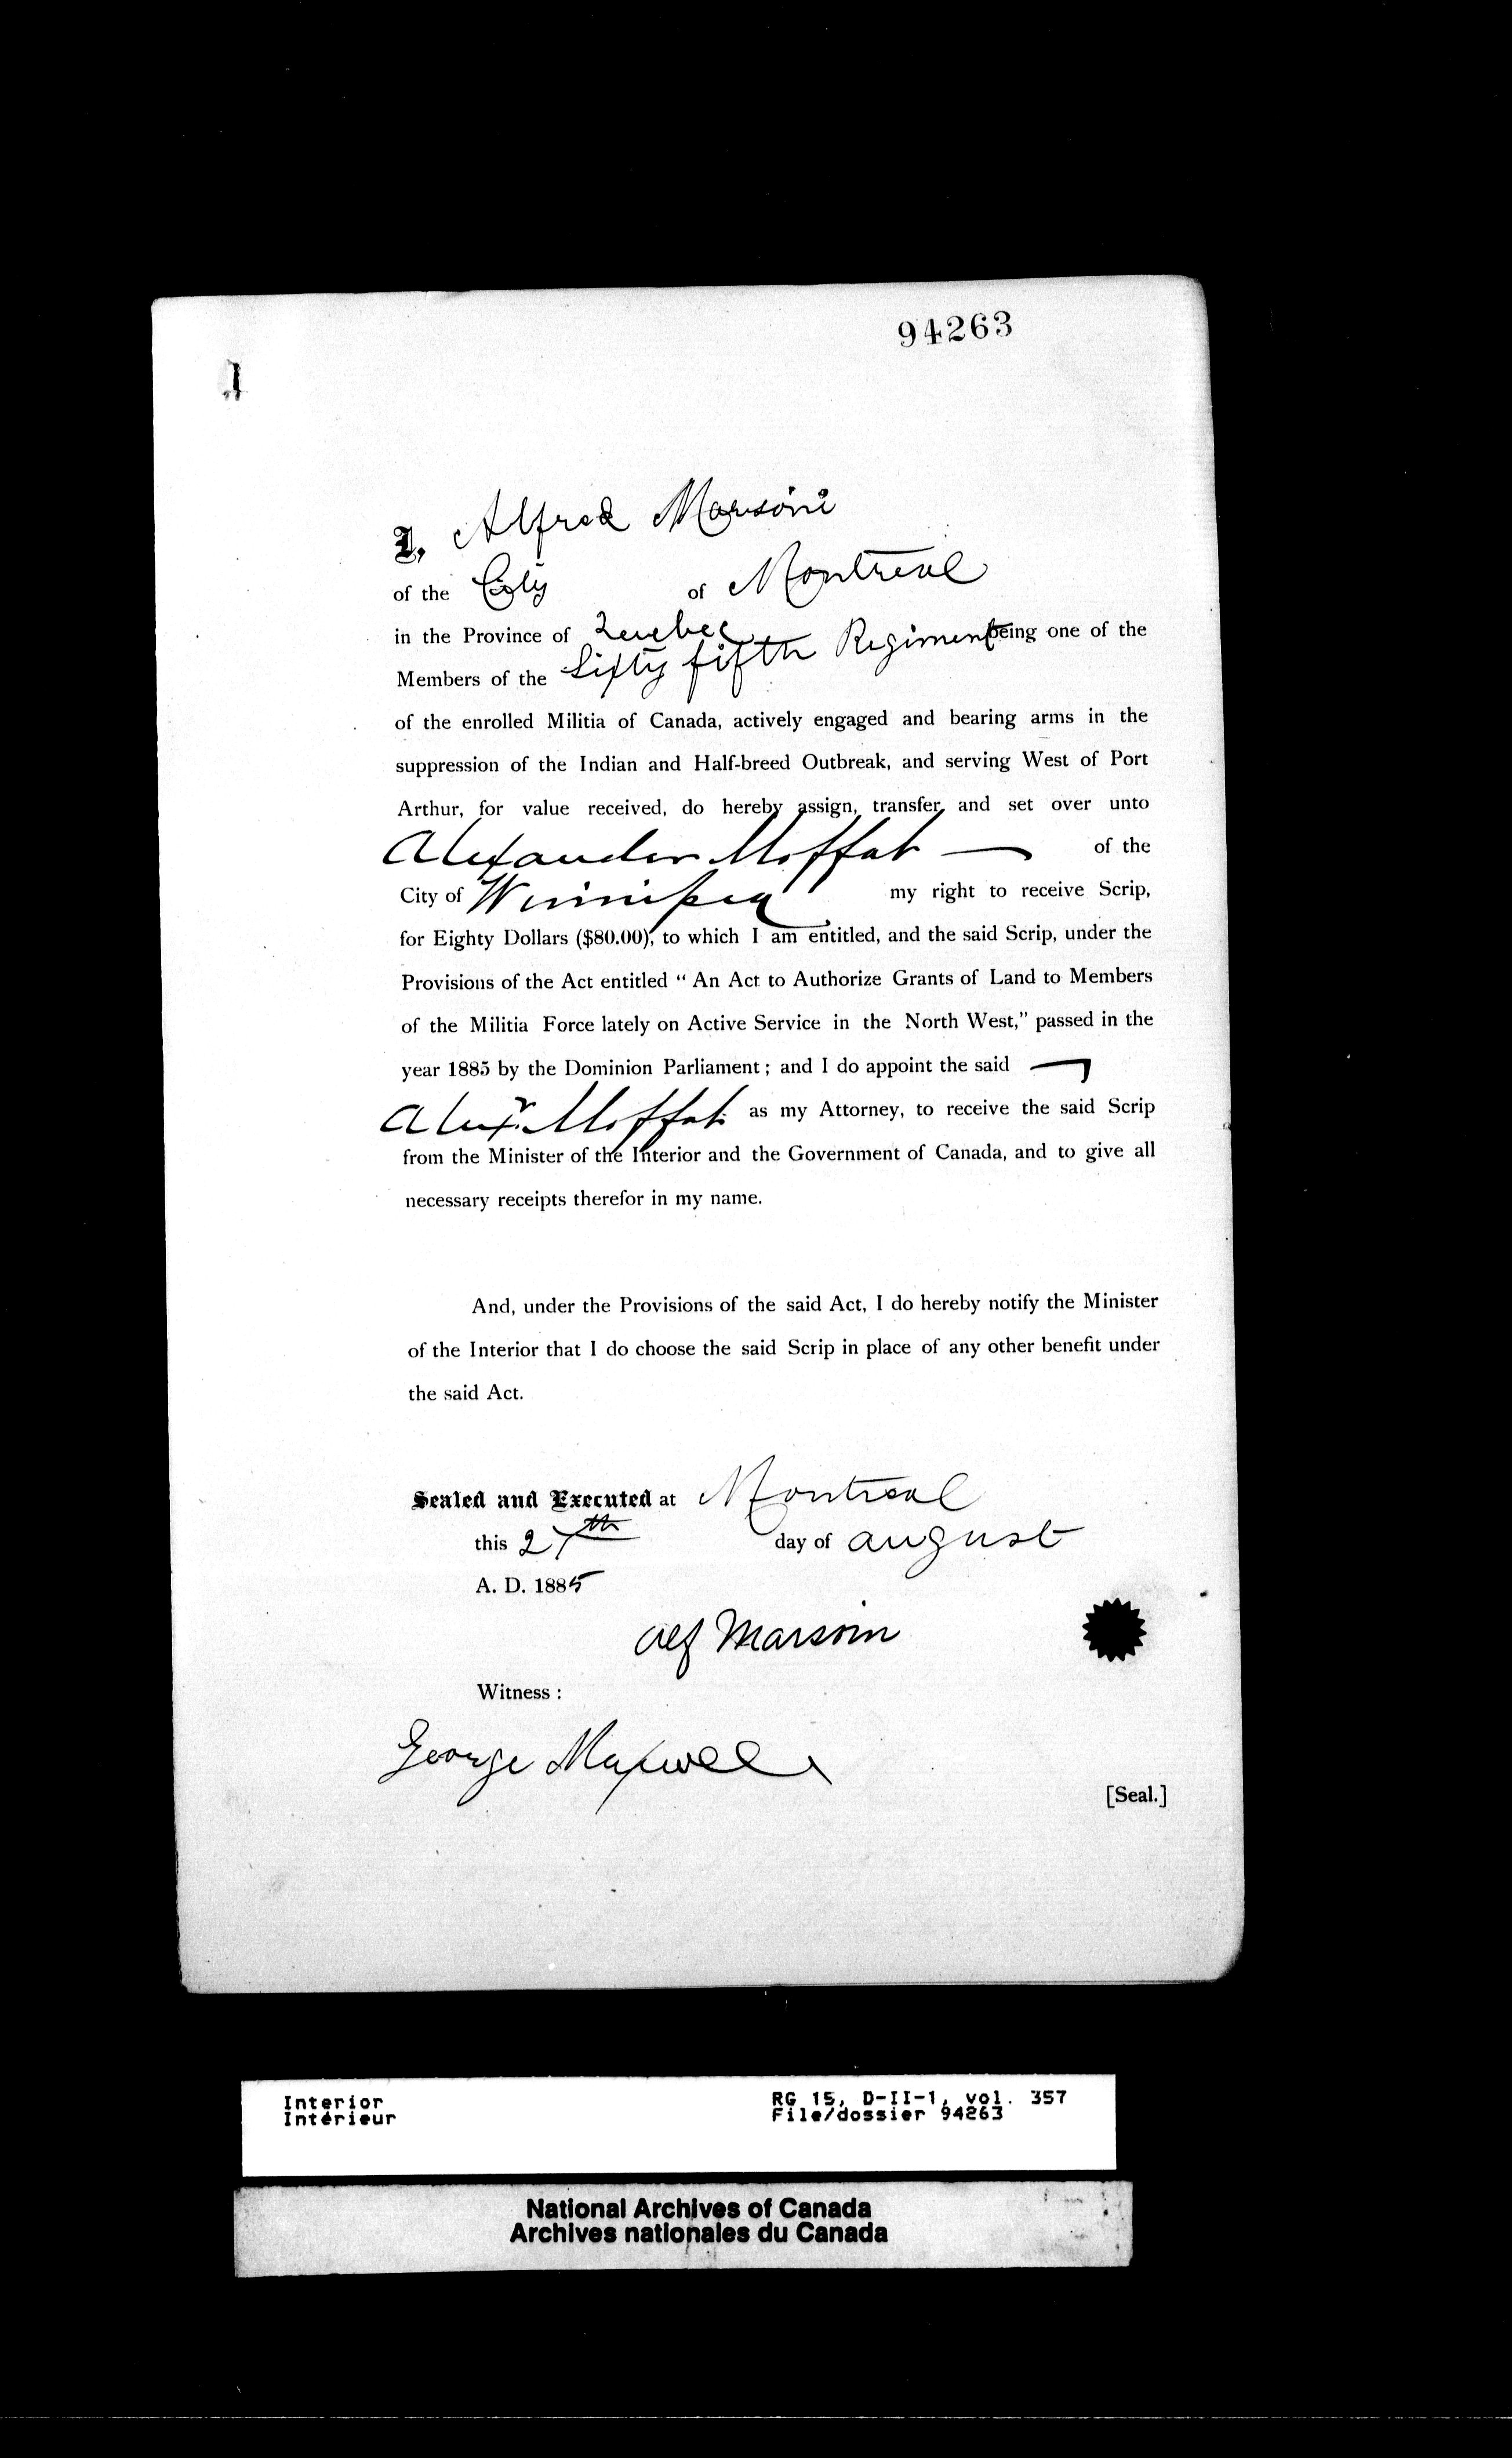 94263
I, Alfred Marsoin
of the City of Montreal
in the Province of Quebec being one of the
Members of the Sixty fifth Regiment
of the enrolled Militia of Canada, actively engaged and bearing arms in the
suppression of the Indian and Half-breed Outbreak, and serving West of Port
Arthur, for value received, do hereby assign, transfer and set over unto
Alexander Moffat — of the
City of Winnipeg my right to receive Scrip,
for Eighty Dollars ($80.00), to which I am entitled, and the said Scrip, under the
Provisions of the Act entitled “ An Act to Authorize Grants of Land to Members
of the Militia Force lately on Active Service in the North West,” passed in the
year 1885 by the Dominion Parliament ; and I do appoint the said —
Alexr. Moffat as my Attorney, to receive the said Scrip
from the Minister of the Interior and the Government of Canada, and to give all
necessary receipts therefor in my name.
And, under the Provisions of the said Act, I do hereby notify the Minister
of the Interior that I do choose the said Scrip in place of any other benefit under
the said Act.
Sealed and Executed at Montreal
this 27th day of august
A. D. 1885
Alf Marsoin
Witness :
George Maxwell
[Seal.]
Interior RG 15, D-II-1, vol. 357
Intérieur File/dossier 94263
National Archives of Canada
Archives nationales du Canada